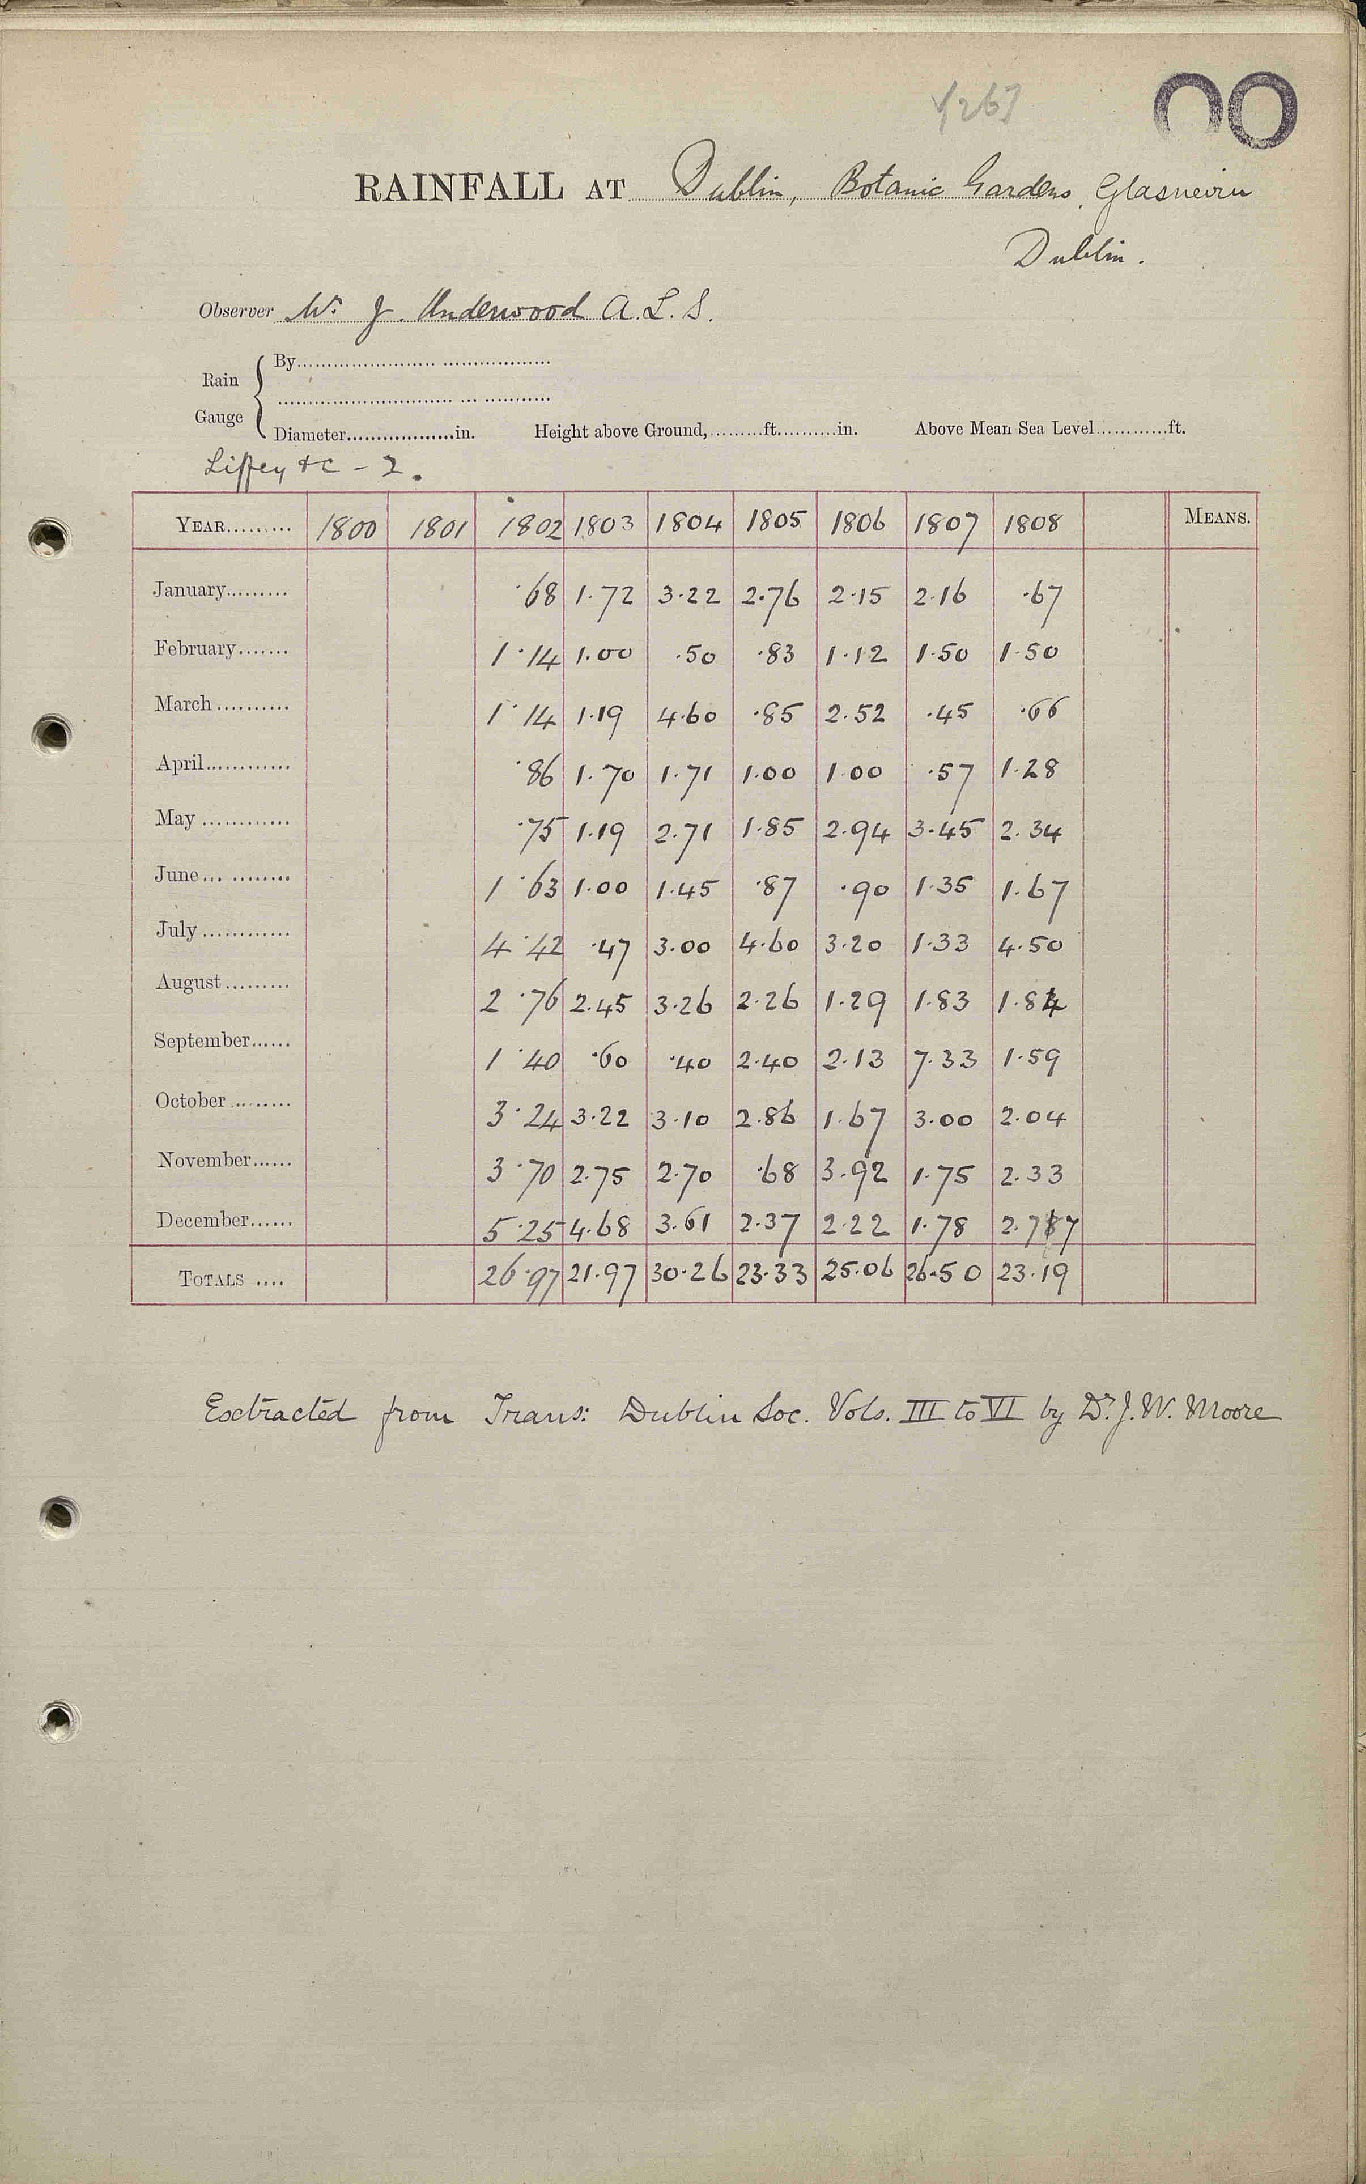 00
RAINFALL AT Dublin, Botanic Gardens, Glasnevin
Dublin.
Observer Mr. J. Underwood A.L.S.
Rain Gauge { By
Diameter in. Height above Ground, ft. in. Above Mean Sea Level ft.
Liffey &c - 2.
YEAR 1800 1801 1802 1803 1804 1805 1806 1807 1808 MEANS.
January .68 1.72 3.22 2.76 2.15 2.16 .67
February 1.14 1.00 .50 .83 1.12 1.50 1.50
March 1.14 1.19 4.60 .85 2.52 .45 .66
April .86 1.70 1.71 1.00 1.00 .57 1.28
May .75 1.19 2.71 1.85 2.94 3.45 2.34
June 1.63 1.00 1.45 .87 .90 1.35 1.67
July 4.42 .47 3.00 4.60 3.20 1.33 4.50
August 2.76 2.45 3.26 2.26 1.29 1.83 1.84
September 1.40 .60 .40 2.40 2.13 7.33 1.59
October 3.24 3.22 3.10 2.86 1.67 3.00 2.04
November 3.70 2.75 2.70 .68 3.92 1.75 2.33
December 5.25 4.68 3.61 2.37 2.22 1.78 2.77
TOTALS 26.97 21.97 30.26 23.33 25.06 26.50 23.19
Extracted from Trans: Dublin Soc. Vols. III to VI by Dr. J. W. Moore